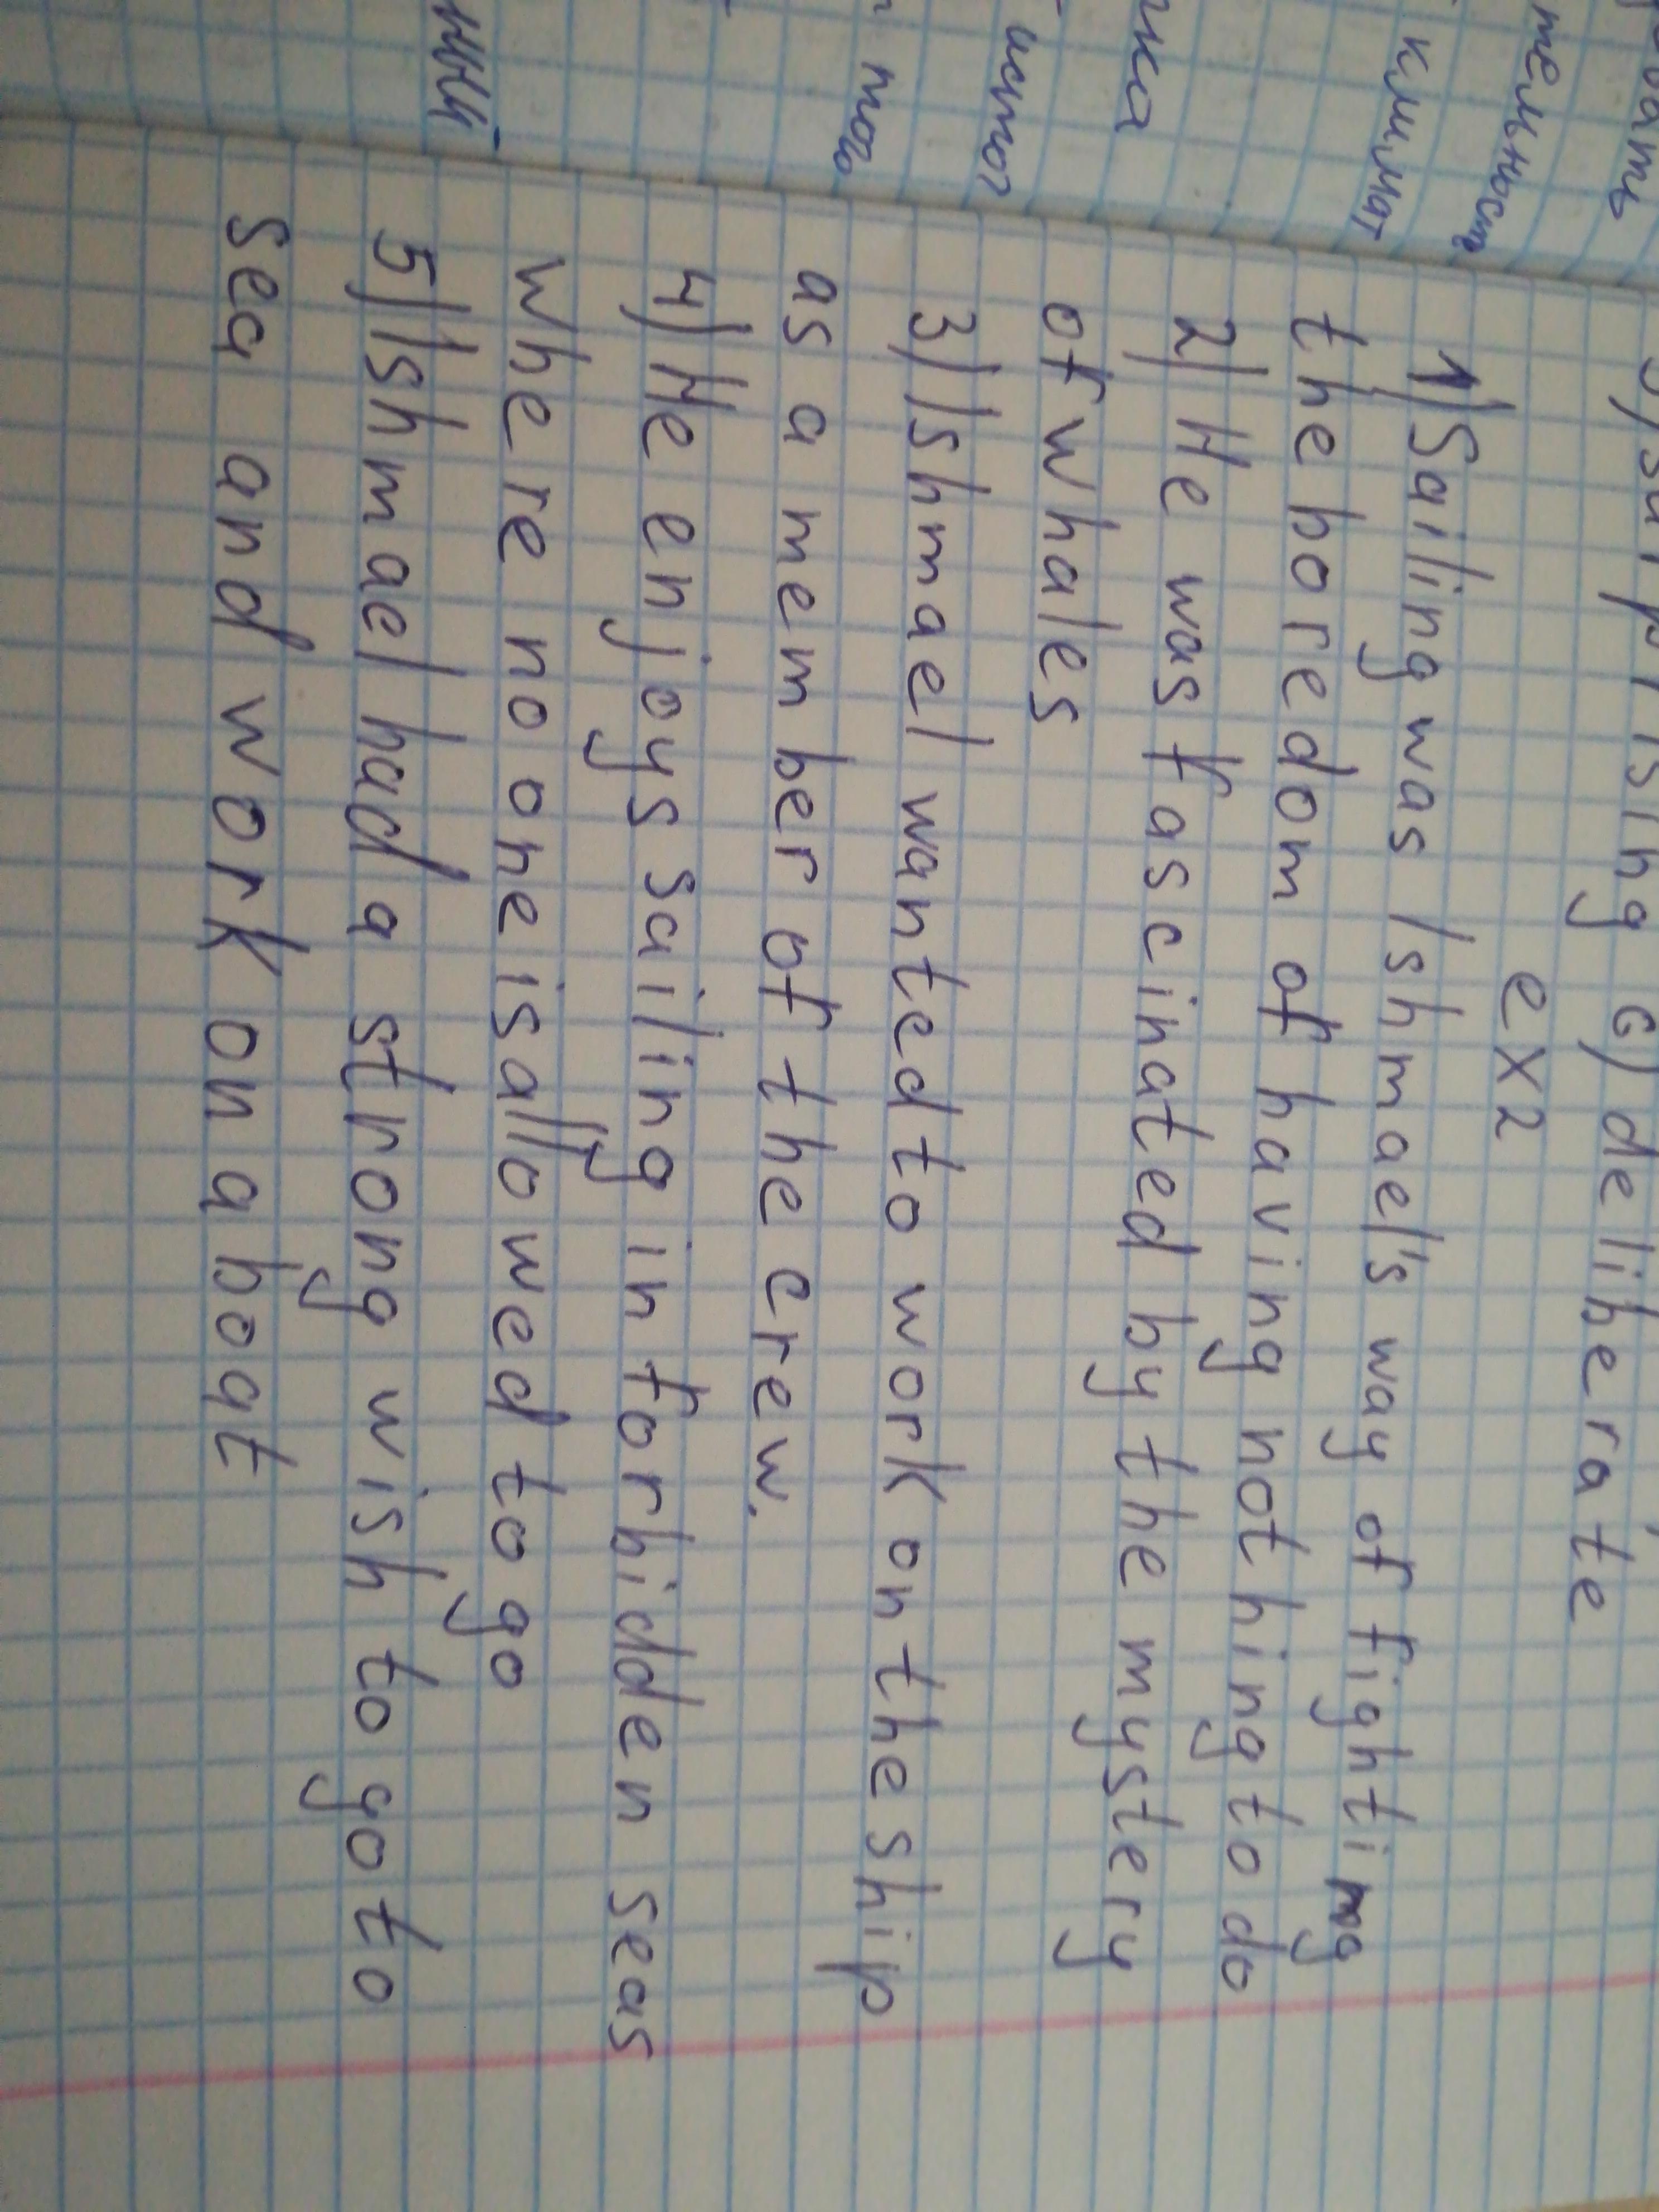 5) surprising 6) deliberate
ex2
1) Sailing was Ishmael's way of fighting
the boredom of having nothing to do
2) He was fascinated by the mystery
of whales
3) Ishmael wanted to work on the ship
as a member of the crew.
4) He enjoys sailing in forbidden seas
where no one is allowed to go
5) Ishmael had a strong wish to go to
sea and work on a boat
климат